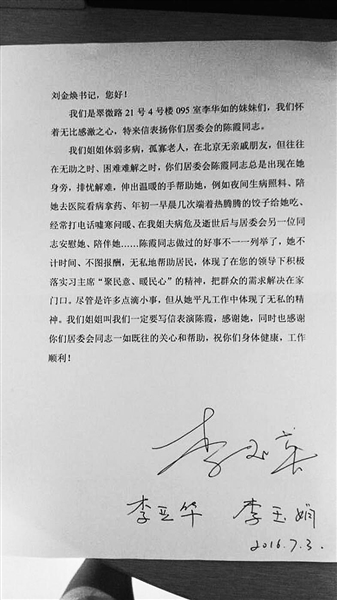 刘金焕书记，您好！
我们是翠微路 21 号 4 号楼 095 室李华如的妹妹们，我们怀
着无比感激之心，特来信表扬你们居委会的陈霞同志。
我们姐姐体弱多病，孤寡老人，在北京无亲戚朋友，但往往
在无助之时、困难难解之时，你们居委会陈霞同志总是出现在她
身旁，排忧解难，伸出温暖的手帮助她，例如夜间生病照料、陪
她去医院看病拿药、年初一早晨几次端着热腾腾的饺子给她吃、
经常打电话嘘寒问暖、在我姐夫病危及逝世后与居委会另一位同
志安慰她、陪伴她……陈霞同志做过的好事不一一列举了，她不
计时间、不图报酬，无私地帮助居民，体现了在您的领导下积极
落实习主席“聚民意、暖民心”的精神，把群众的需求解决在家
门口。尽管是许多点滴小事，但从她平凡工作中体现了无私的精
神。我们姐姐叫我们一定要写信表演陈霞，感谢她，同时也感谢
你们居委会同志一如既往的关心和帮助，祝你们身体健康，工作
顺利！
李亚华 李玉娴
2016.7.3.